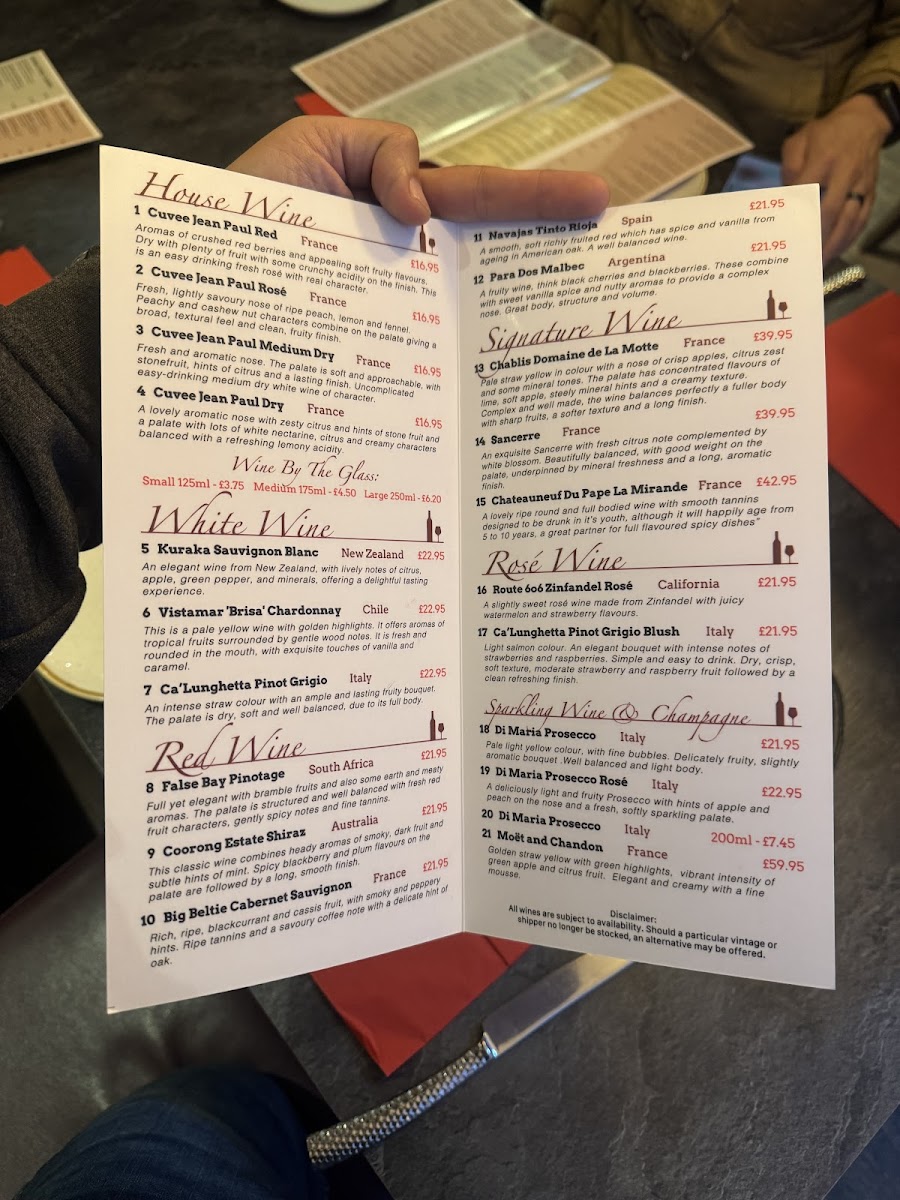 House Wine
1 Cuvee Jean Paul Red France £16.95
Aromas of crushed red berries and appealing soft fruity flavours.
Dry with plenty of fruit with some crunchy acidity on the finish. This
is an easy drinking fresh rosé with real character.
2 Cuvee Jean Paul Rosé France £16.95
Fresh, lightly savoury nose of ripe peach, lemon and fennel.
Peachy and cashew nut characters combine on the palate giving a
broad, textural feel and clean, fruity finish.
3 Cuvee Jean Paul Medium Dry France £16.95
Fresh and aromatic nose. The palate is soft and approachable, with
stonefruit, hints of citrus and a lasting finish. Uncomplicated
easy-drinking medium dry white wine of character.
4 Cuvee Jean Paul Dry France £16.95
A lovely aromatic nose with zesty citrus and hints of stone fruit and
a palate with lots of white nectarine, citrus and creamy characters
balanced with a refreshing lemony acidity.
Wine By The Glass:
Small 125ml - £3.75 Medium 175ml - £4.50 Large 250ml - £6.20
White Wine
5 Kuraka Sauvignon Blanc New Zealand £22.95
An elegant wine from New Zealand, with lively notes of citrus,
apple, green pepper, and minerals, offering a delightful tasting
experience.
6 Vistamar 'Brisa' Chardonnay Chile £22.95
This is a pale yellow wine with golden highlights. It offers aromas of
tropical fruits surrounded by gentle wood notes. It is fresh and
rounded in the mouth, with exquisite touches of vanilla and
caramel.
7 Ca'Lunghetta Pinot Grigio Italy £22.95
An intense straw colour with an ample and lasting fruity bouquet.
The palate is dry, soft and well balanced, due to its full body.
Red Wine
8 False Bay Pinotage South Africa £21.95
Full yet elegant with bramble fruits and also some earth and meaty
aromas. The palate is structured and well balanced with fresh red
fruit characters, gently spicy notes and fine tannins.
9 Coorong Estate Shiraz Australia £21.95
This classic wine combines heady aromas of smoky, dark fruit and
subtle hints of mint. Spicy blackberry and plum flavours on the
palate are followed by a long, smooth finish.
10 Big Beltie Cabernet Sauvignon France £21.95
Rich, ripe, blackcurrant and cassis fruit, with smoky and peppery
hints. Ripe tannins and a savoury coffee note with a delicate hint of
oak.
11 Navajas Tinto Rioja Spain £21.95
A smooth, soft richly fruited red which has spice and vanilla from
ageing in American oak. A well balanced wine.
12 Para Dos Malbec Argentina £21.95
A fruity wine, think black cherries and blackberries. These combine
with sweet vanilla spice and nutty aromas to provide a complex
nose. Great body, structure and volume.
Signature Wine
13 Chablis Domaine de La Motte France £39.95
Pale straw yellow in colour with a nose of crisp apples, citrus zest
and some mineral tones. The palate has concentrated flavours of
lime, soft apple, steely mineral hints and a creamy texture.
Complex and well made, the wine balances perfectly a fuller body
with sharp fruits, a softer texture and a long finish.
14 Sancerre France £39.95
An exquisite Sancerre with fresh citrus note complemented by
white blossom. Beautifully balanced, with good weight on the
palate, underpinned by mineral freshness and a long, aromatic
finish.
15 Chateauneuf Du Pape La Mirande France £42.95
A lovely ripe round and full bodied wine with smooth tannins
designed to be drunk in it's youth, although it will happily age from
5 to 10 years, a great partner for full flavoured spicy dishes"
Rosé Wine
16 Route 606 Zinfandel Rosé California £21.95
A slightly sweet rosé wine made from Zinfandel with juicy
watermelon and strawberry flavours.
17 Ca'Lunghetta Pinot Grigio Blush Italy £21.95
Light salmon colour. An elegant bouquet with intense notes of
strawberries and raspberries. Simple and easy to drink. Dry, crisp,
soft texture, moderate strawberry and raspberry fruit followed by a
clean refreshing finish.
Sparkling Wine & Champagne
18 Di Maria Prosecco Italy £21.95
Pale light yellow colour, with fine bubbles. Delicately fruity, slightly
aromatic bouquet .Well balanced and light body.
19 Di Maria Prosecco Rosé Italy £22.95
A deliciously light and fruity Prosecco with hints of apple and
peach on the nose and a fresh, softly sparkling palate.
20 Di Maria Prosecco Italy 200ml - £7.45
21 Moët and Chandon France £59.95
Golden straw yellow with green highlights, vibrant intensity of
green apple and citrus fruit. Elegant and creamy with a fine
mousse.
Disclaimer:
All wines are subject to availability. Should a particular vintage or
shipper no longer be stocked, an alternative may be offered.